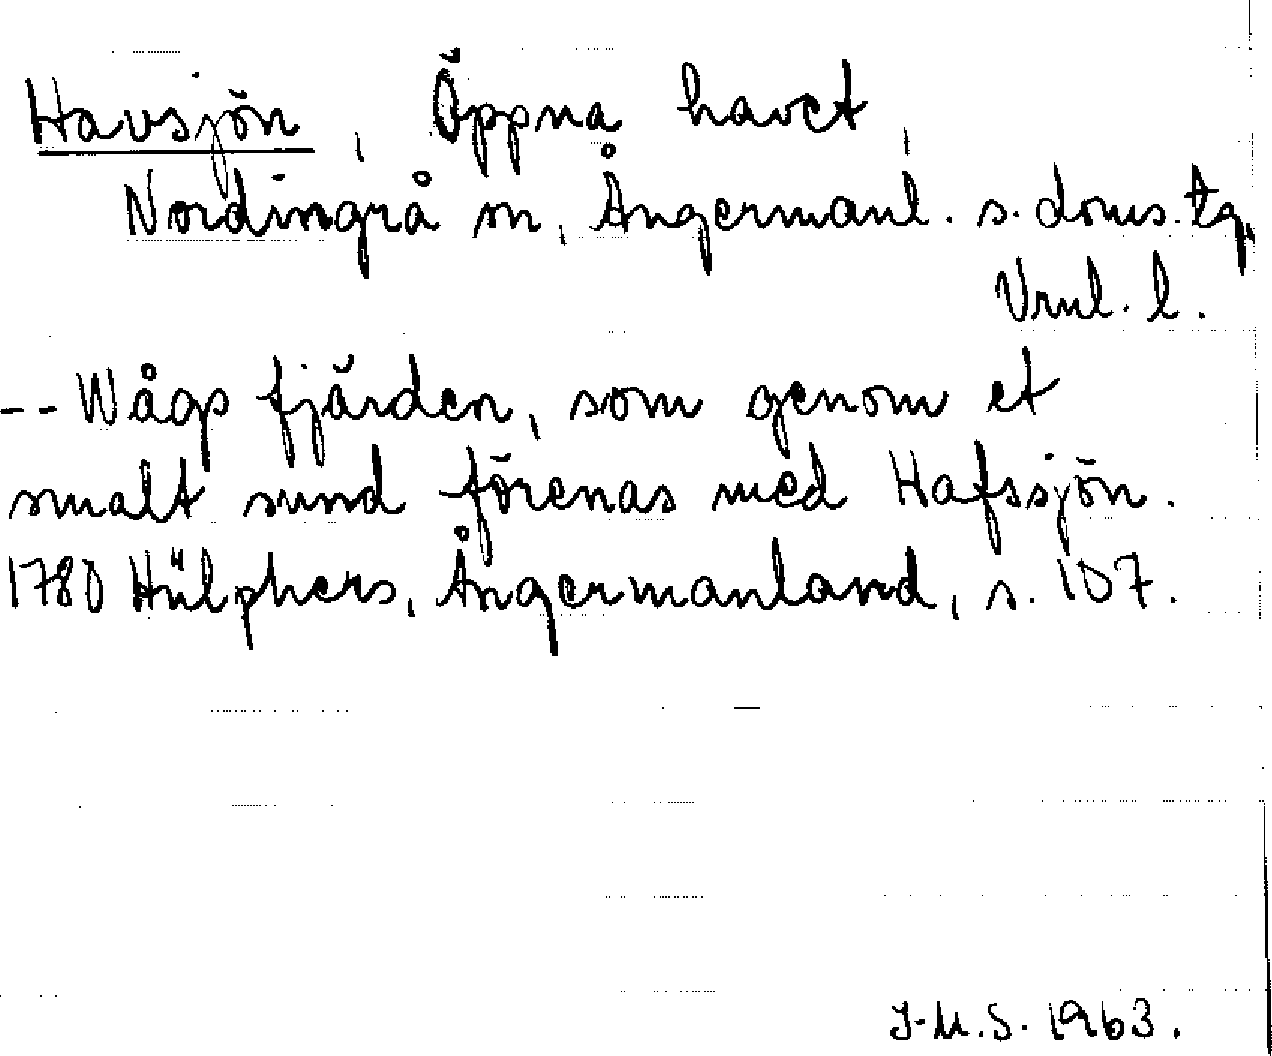 Havsjön, Öppna havet,
Nordingrå sn, Ångermanl. s. doms. tg,
Vrnl. l.
-- Wågs fjärden, som genom et
smalt sund förenas med Hafssjön.
1780 Hülphers, Ångermanland, s. 107.
J.M.S. 1963.